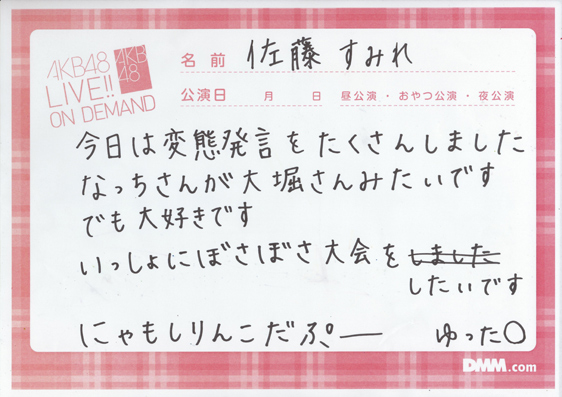 AKB48
LIVE!!
ON DEMAND
AKB
48
名前 佐藤 すみれ
公演日 月 日 昼公演・おやつ公演・夜公演
今日は変態発言をたくさんしました
なっちさんが大堀さんみたいです
でも大好きです
いっしょにぼさぼさ大会をしました
したいです
にゃもしりんこだぷー ゆった○
DMM.com